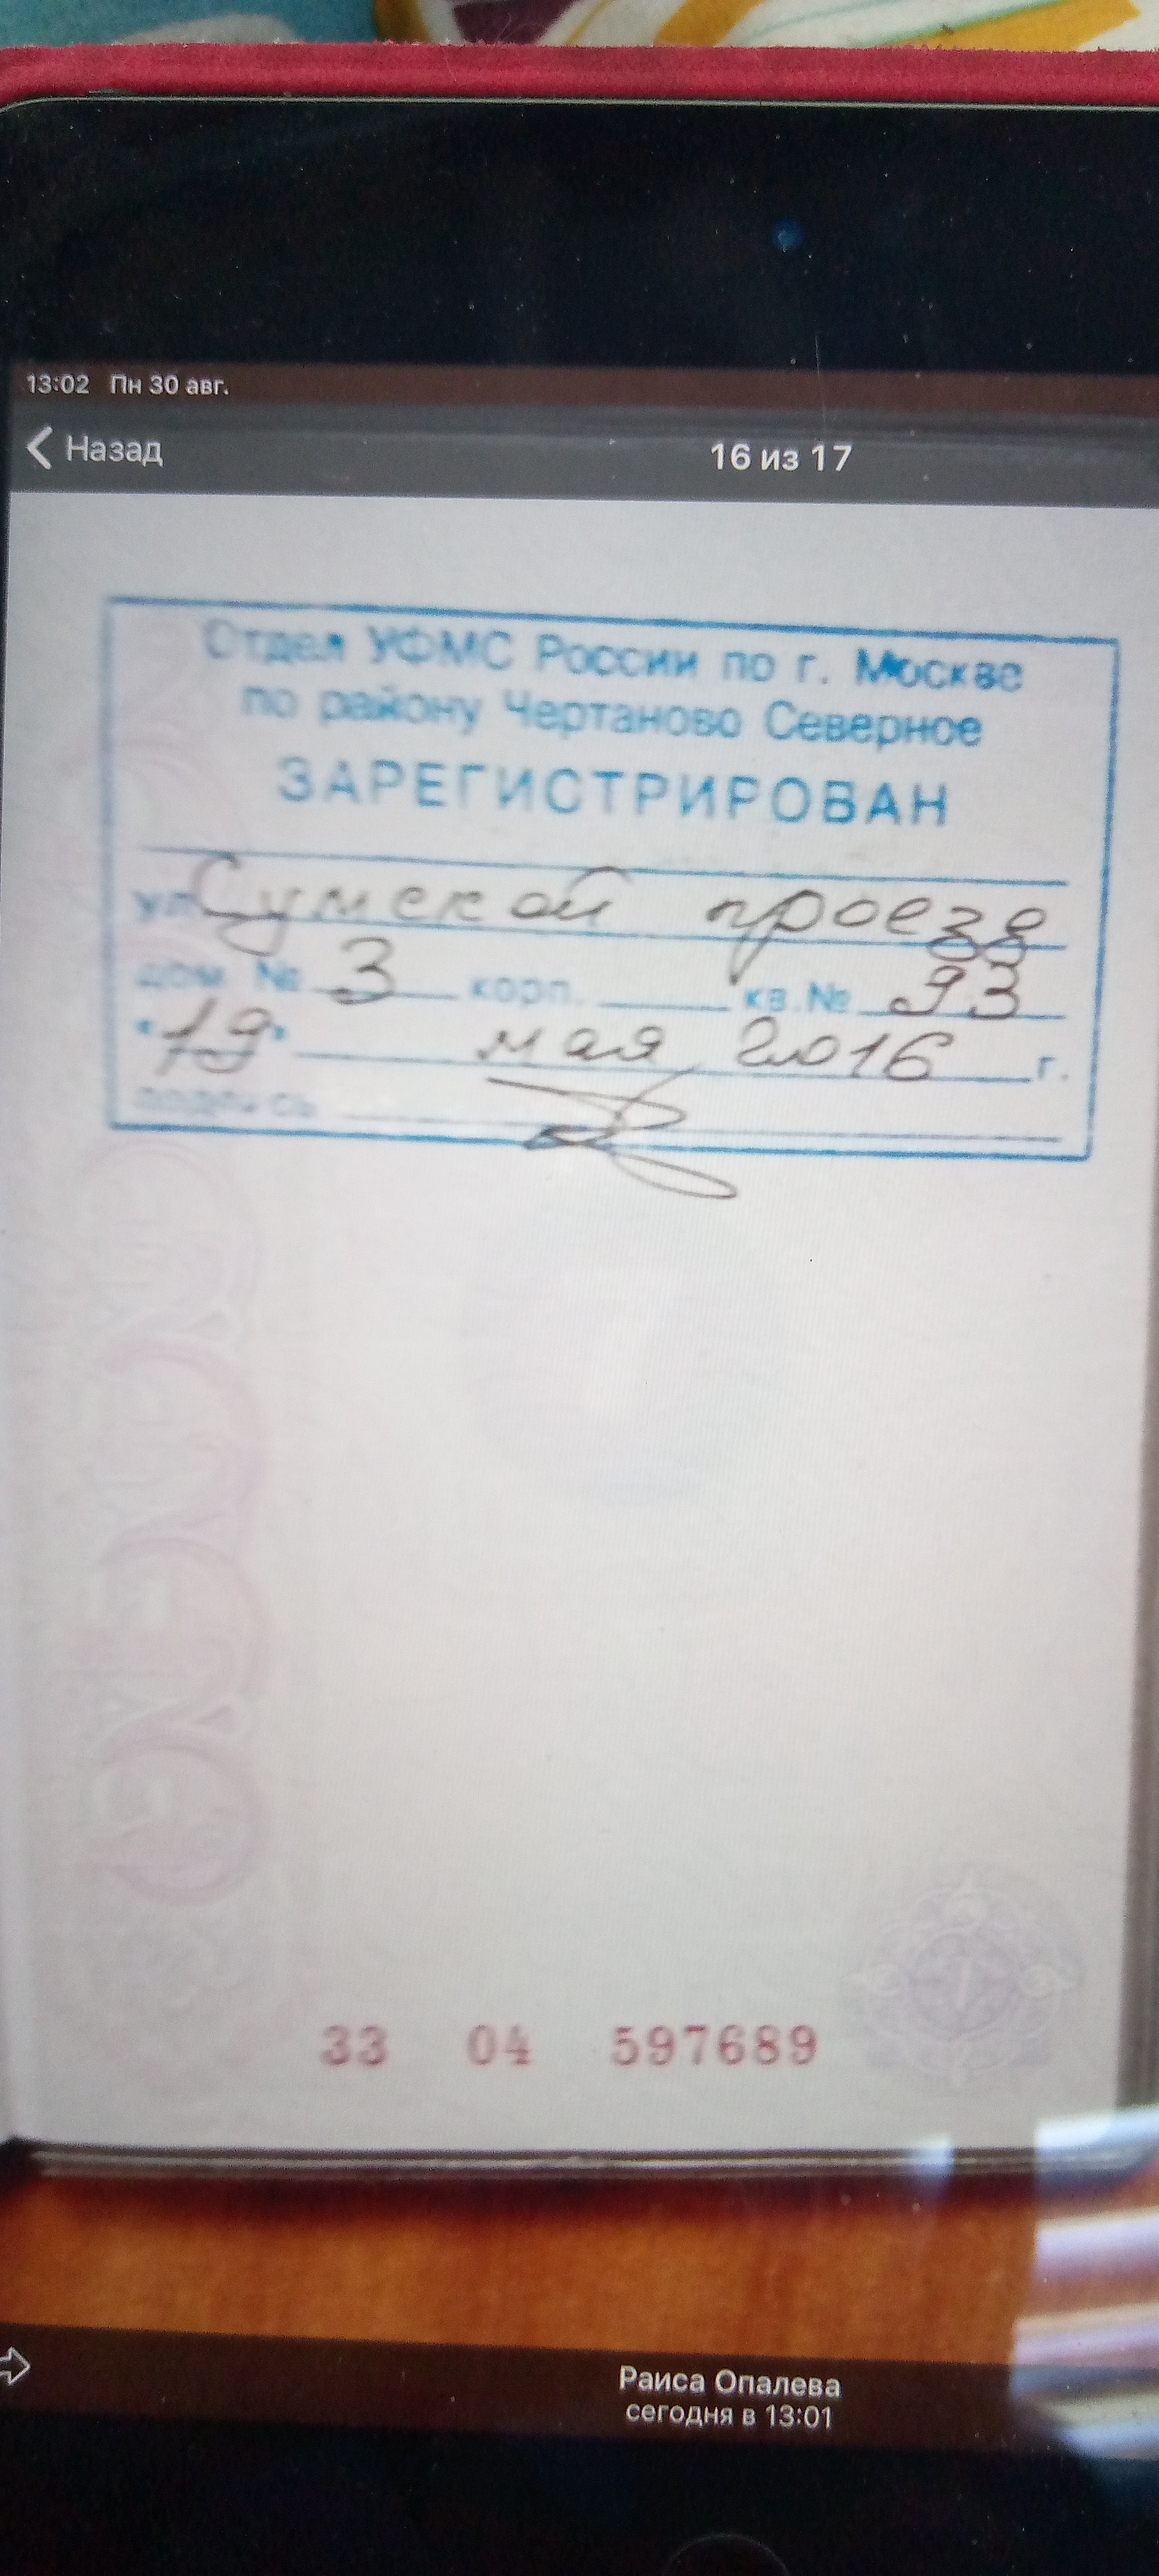 13:02 Пн 30 авг.
Назад
16 из 17
Отдел УФМС России по г. Москве
по району Чертаново Северное
ЗАРЕГИСТРИРОВАН
ул. Сумской проезд
дом № 3 корп. кв. № 93
"19" мая 2016 г.
подпись
33 04 597689
Раиса Опалева
сегодня в 13:01